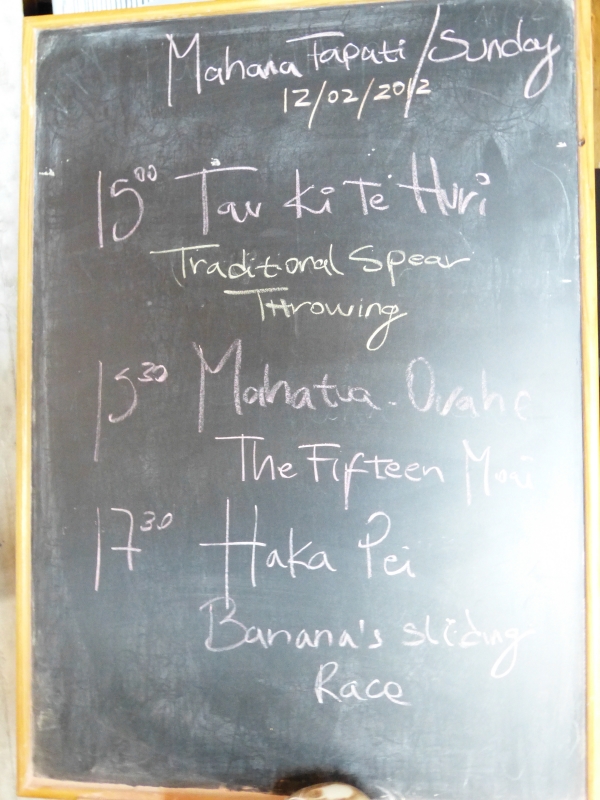 Mahana Tapati / Sunday
12/02/2012
15⁰⁰ Tau Ki Te Huri
Traditional Spear
Throwing
15³⁰ Mahatua - Ovahe
The Fifteen Moai
17³⁰ Haka Pei
Banana's sliding
Race